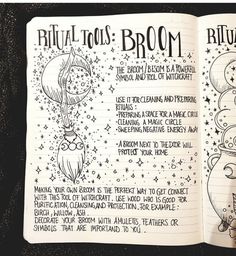 RITUAL TOOLS: BROOM
THE BROOM / BESOM IS A POWERFUL
SYMBOL AND TOOL OF WITCHCRAFT
USE IT FOR CLEANING AND PREPARING
RITUALS:
- PREPARING A SPACE FOR A MAGIC CIRCLE
- CLEANING A MAGIC CIRCLE
- SWEEPING NEGATIVE ENERGY AWAY
- A BROOM NEXT TO THE DOOR WILL
PROTECT YOUR HOME
MAKING YOUR OWN BROOM IS THE PERFEKT WAY TO GET CONNECT
WITH THIS TOOL OF WITCHCRAFT. USE WOOD WHO IS GOOD FOR
PURIFICATION, CLEANSING AND PROTECTION, FOR EXAMPLE:
BIRCH, WILLOW, ASH.
DECORATE YOUR BROOM WITH AMULETS, FEATHERS OR
SYMBOLS THAT ARE IMPORTANT TO YOU.
RITU